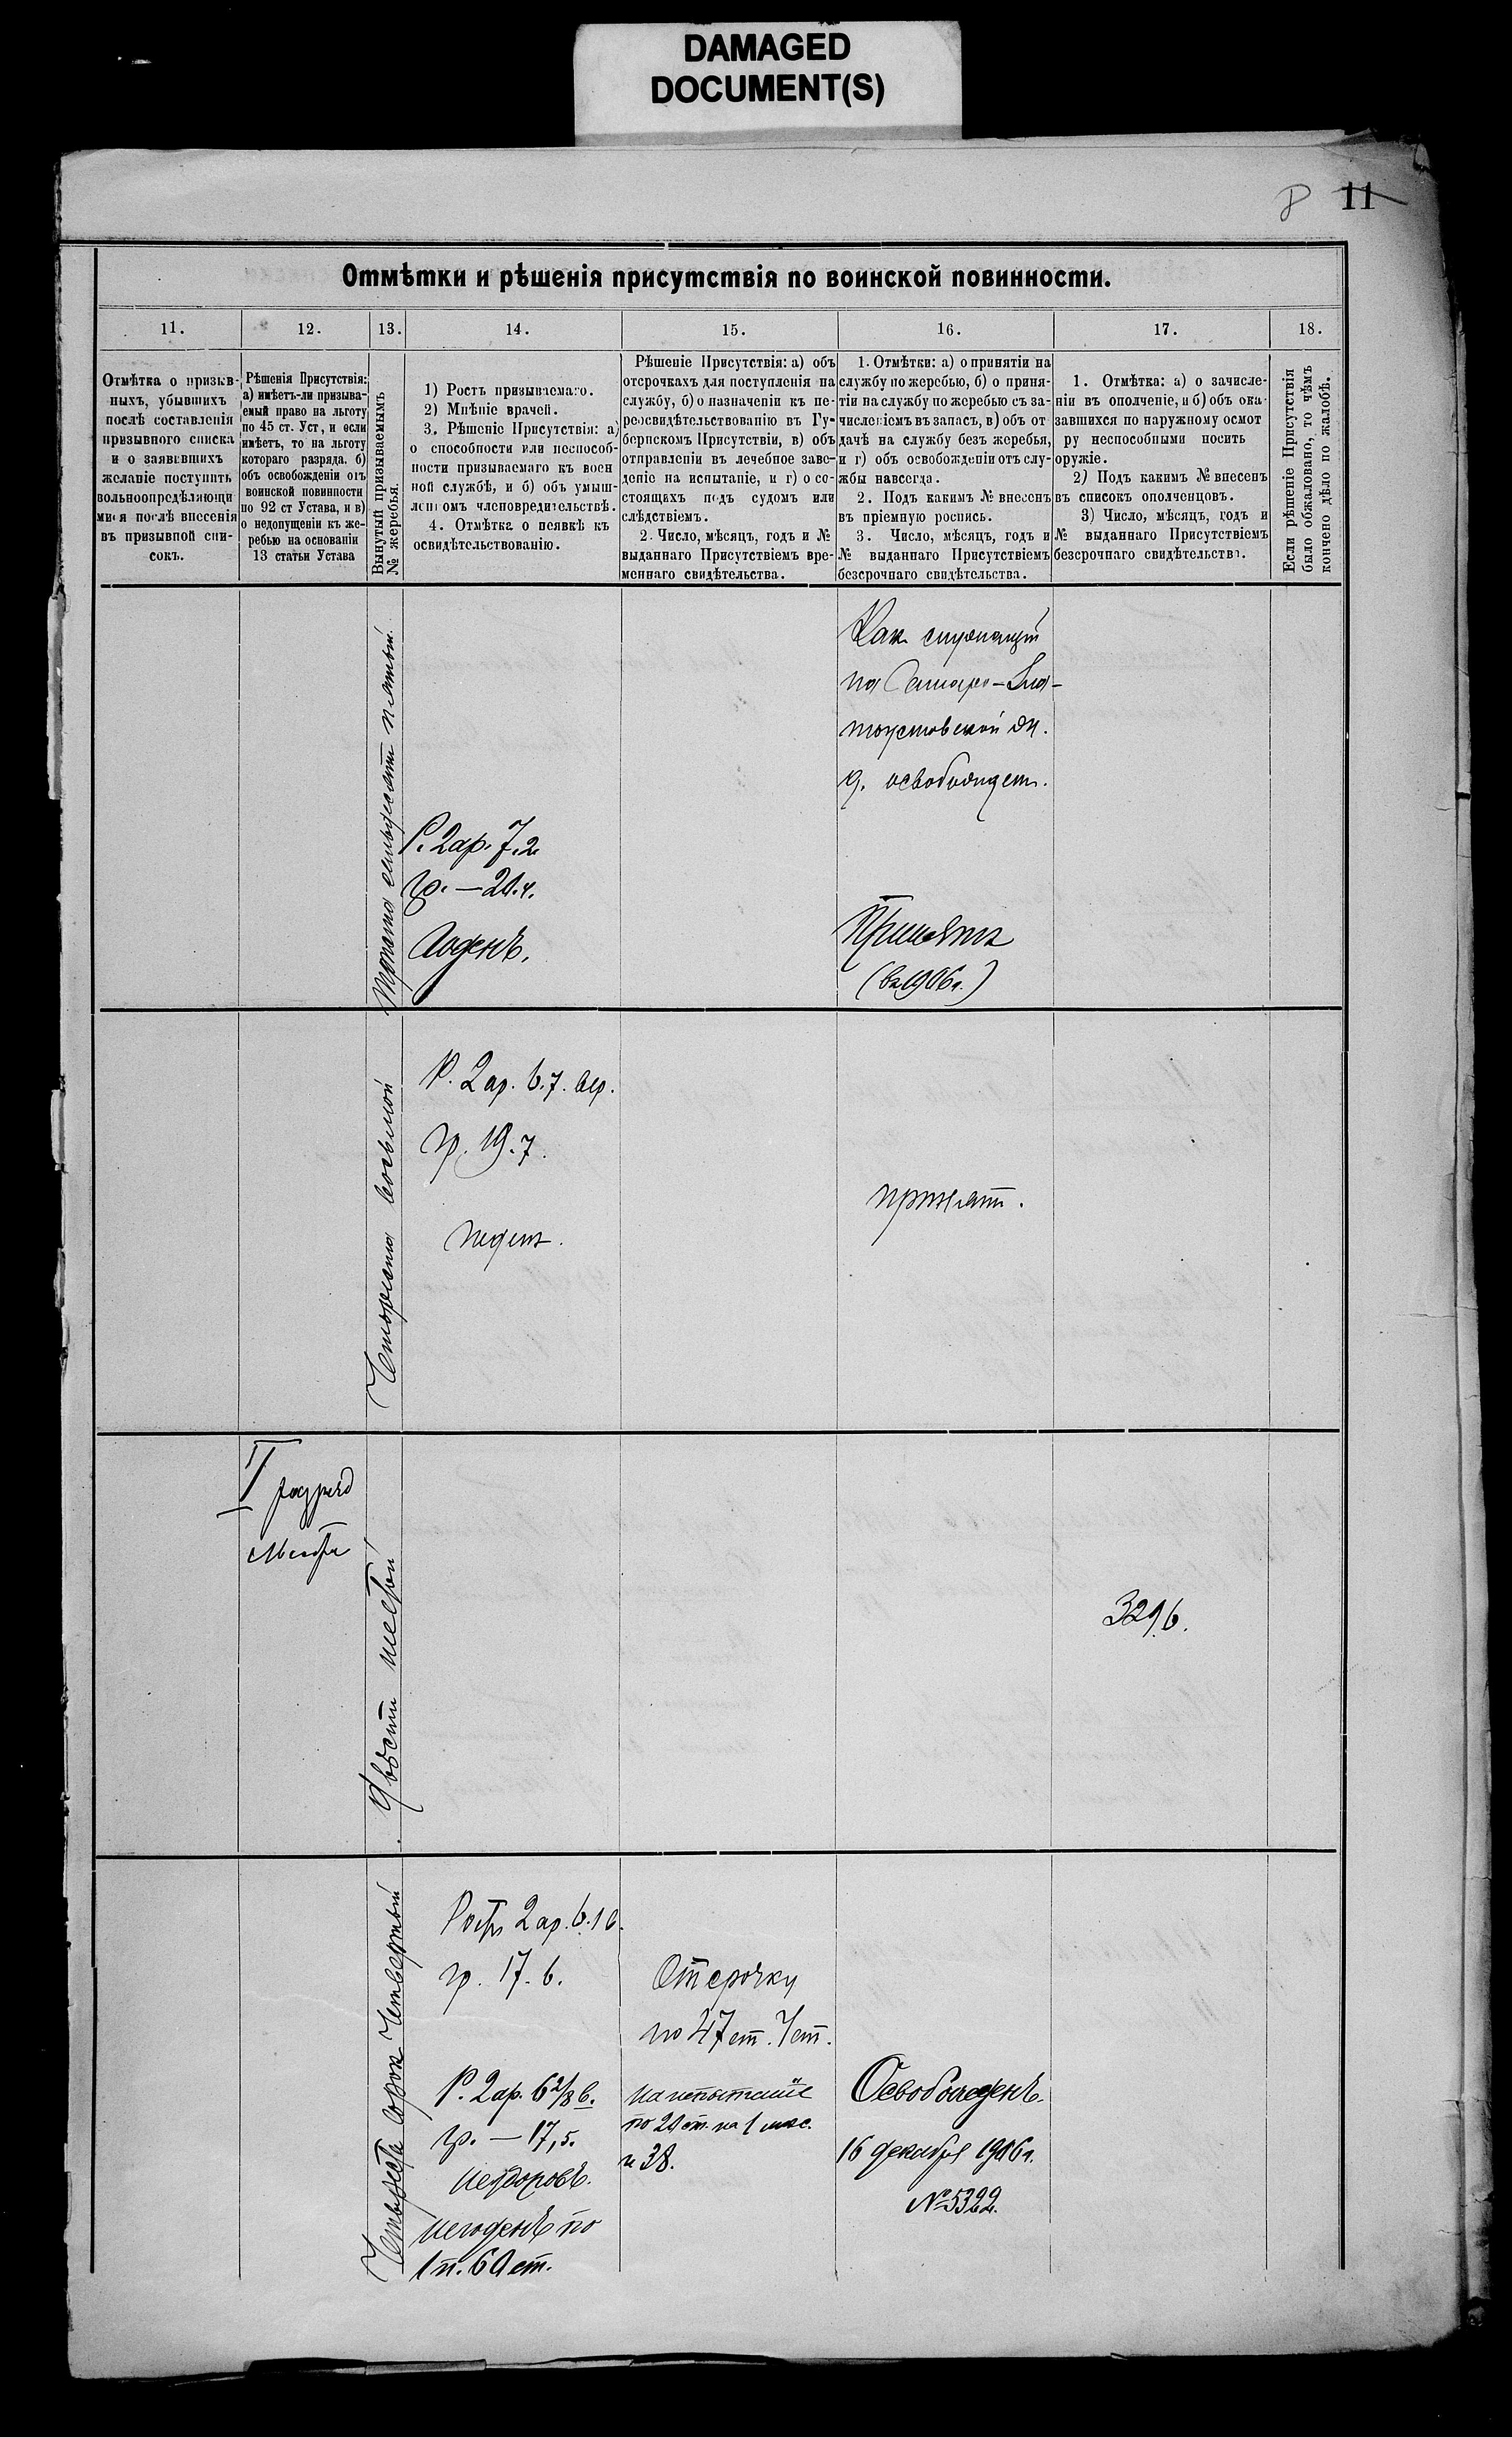 DAMAGED
DOCUMENT(S)
8 11
Отмѣтки и рѣшенія присутствія по воинской повинности.
11.
12.
13.
14.
15.
16.
17.
18.
Отмѣтка о призыв-
ныхъ, убывшихъ
послѣ составленія
призывного списка
и о заявившихъ
желаніе поступить
вольноопредѣляющи
мися послѣ внесенія
въ призывной спи-
сокъ.
Рѣшенія Присутствія:
а) имѣетъ-ли призыва-
емый право на льготу
по 45 ст. Уст, и если
имѣетъ, то на льготу
котораго разряда, б)
объ освобожденіи отъ
воинской повинности
по 92 ст Устава, и в)
о недопущеніи къ же-
ребью на основаніи
13 статьи Устава
Вынутый призываемымъ
№ жеребья.
1) Ростъ призываемаго.
2) Мнѣніе врачей.
3. Рѣшеніе Присутствія: а)
о способности или неспособ-
ности призываемаго къ воен
ной службѣ, и б) объ умыш-
ленномъ членовредительствѣ.
4. Отмѣтка о неявкѣ къ
освидѣтельствованію.
Рѣшеніе Присутствія: а) объ
отсрочкахъ для поступленія на
службу, б) о назначеніи къ пе-
реосвидѣтельствованію въ Гу-
бернскомъ Присутствіи, в) объ
отправленіи въ лечебное заве-
деніе на испытаніе, и г) о со-
стоящахъ подъ судомъ или
слѣдствіемъ.
2. Число, мѣсяцъ, годъ и №
выданнаго Присутствіемъ вре-
меннаго свидѣтельства.
1. Отмѣтки: а) о принятіи на
службу по жеребью, б) о приня-
тіи на службу по жеребью съ за-
численіемъ въ запасъ, в) объ от
дачѣ на службу безъ жеребья,
и г) объ освобожденіи отъ слу-
жбы навсегда.
2. Подъ какимъ № внесенъ
въ пріемную роспись.
3. Число, мѣсяцъ, годъ и
№ выданнаго Присутствіемъ
безсрочнаго свидѣтельства.
1. Отмѣтка: а) о зачисле-
ніи въ ополченіе, и б) объ ока-
завшихся по наружному осмот
ру неспособными носить
оружіе.
2) Подъ какимъ № внесенъ
въ списокъ ополченцовъ.
3) Число, мѣсяцъ, годъ и
№ выданнаго Присутствіемъ
безсрочнаго свидѣтельства.
Если рѣшеніе Присутствія
было обжаловано, то чѣмъ
кончено дѣло по жалобѣ.
Триста семьдесятъ пятый.
Р. 2 ар. 7.2
гр. — 21.4.
Годенъ.
Как служащій
на Самаро-Зла-
тоустовской ж.
д. освобождет.
Принятъ
(въ 1906 г.)
Четыреста восьмой
Р. 2 ар. 6.7. вер.
гр. 19.7.
годенъ.
принятъ.
I разряд
Двѣсти шестой
3296.
Четыреста сорок четвертый
Ростъ 2 ар. 6.1 в.
гр. 17.6.
Р. 2 ар. 6 2/8 в.
гр. — 17,5.
Нездоровъ.
негоденъ по
1 п. 69 ст.
Отсрочку
по 47 ст. Уст.
на испытаніе
по 21 ст. на 1 мес.
и 38.
Освобожденъ.
16 декабря 1906 г.
№ 5322.